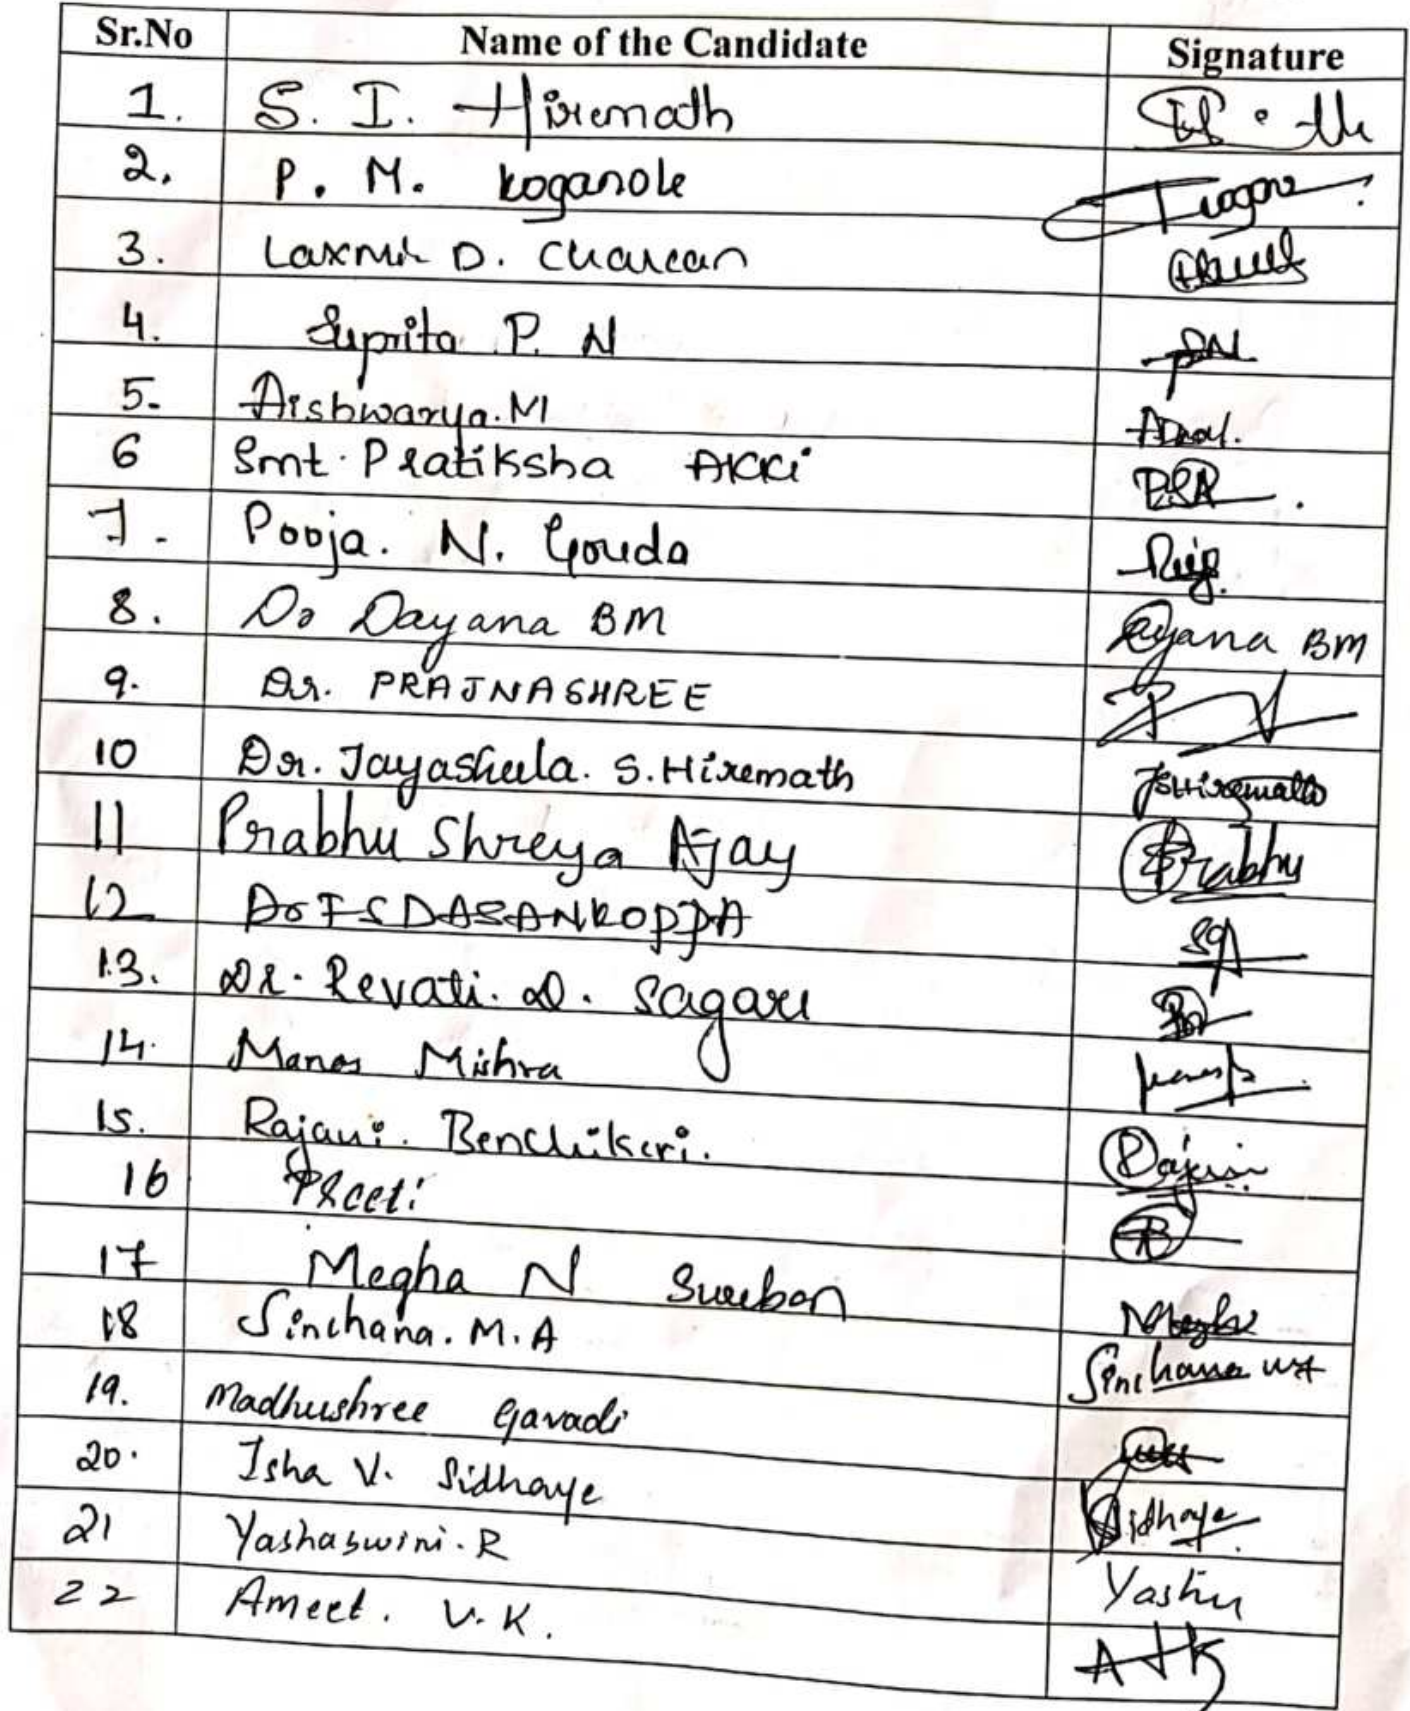 Sr.No Name of the Candidate Signature
1. S. I. Hiremath
2. P. M. Koganole
3. Laxmi D. Chavan
4. Suprita P. N PN
5. Aishwarya.M
6 Smt. Pratiksha AKKi
7. Pooja. N. Gouda
8. Dr Dayana BM Dayana BM
9. Dr. PRAJNASHREE
10 Dr. Jayasheela. S.Hiremath JSHiremath
11 Prabhu Shreya Ajay Prabhu
12 Dr I S DASANKOPPA
13. Dr. Revati. D. Sagare
14. Manas Mishra
15. Rajani. Benchikeri. Rajani
16 Preeti
17 Megha N Sureban Megha
18 Sinchana. M. A Sinchana
19. Madhushree Gavadi
20. Isha V. Sidhaye Sidhaye
21 Yashaswini. R Yashu
22 Ameet. V. K.